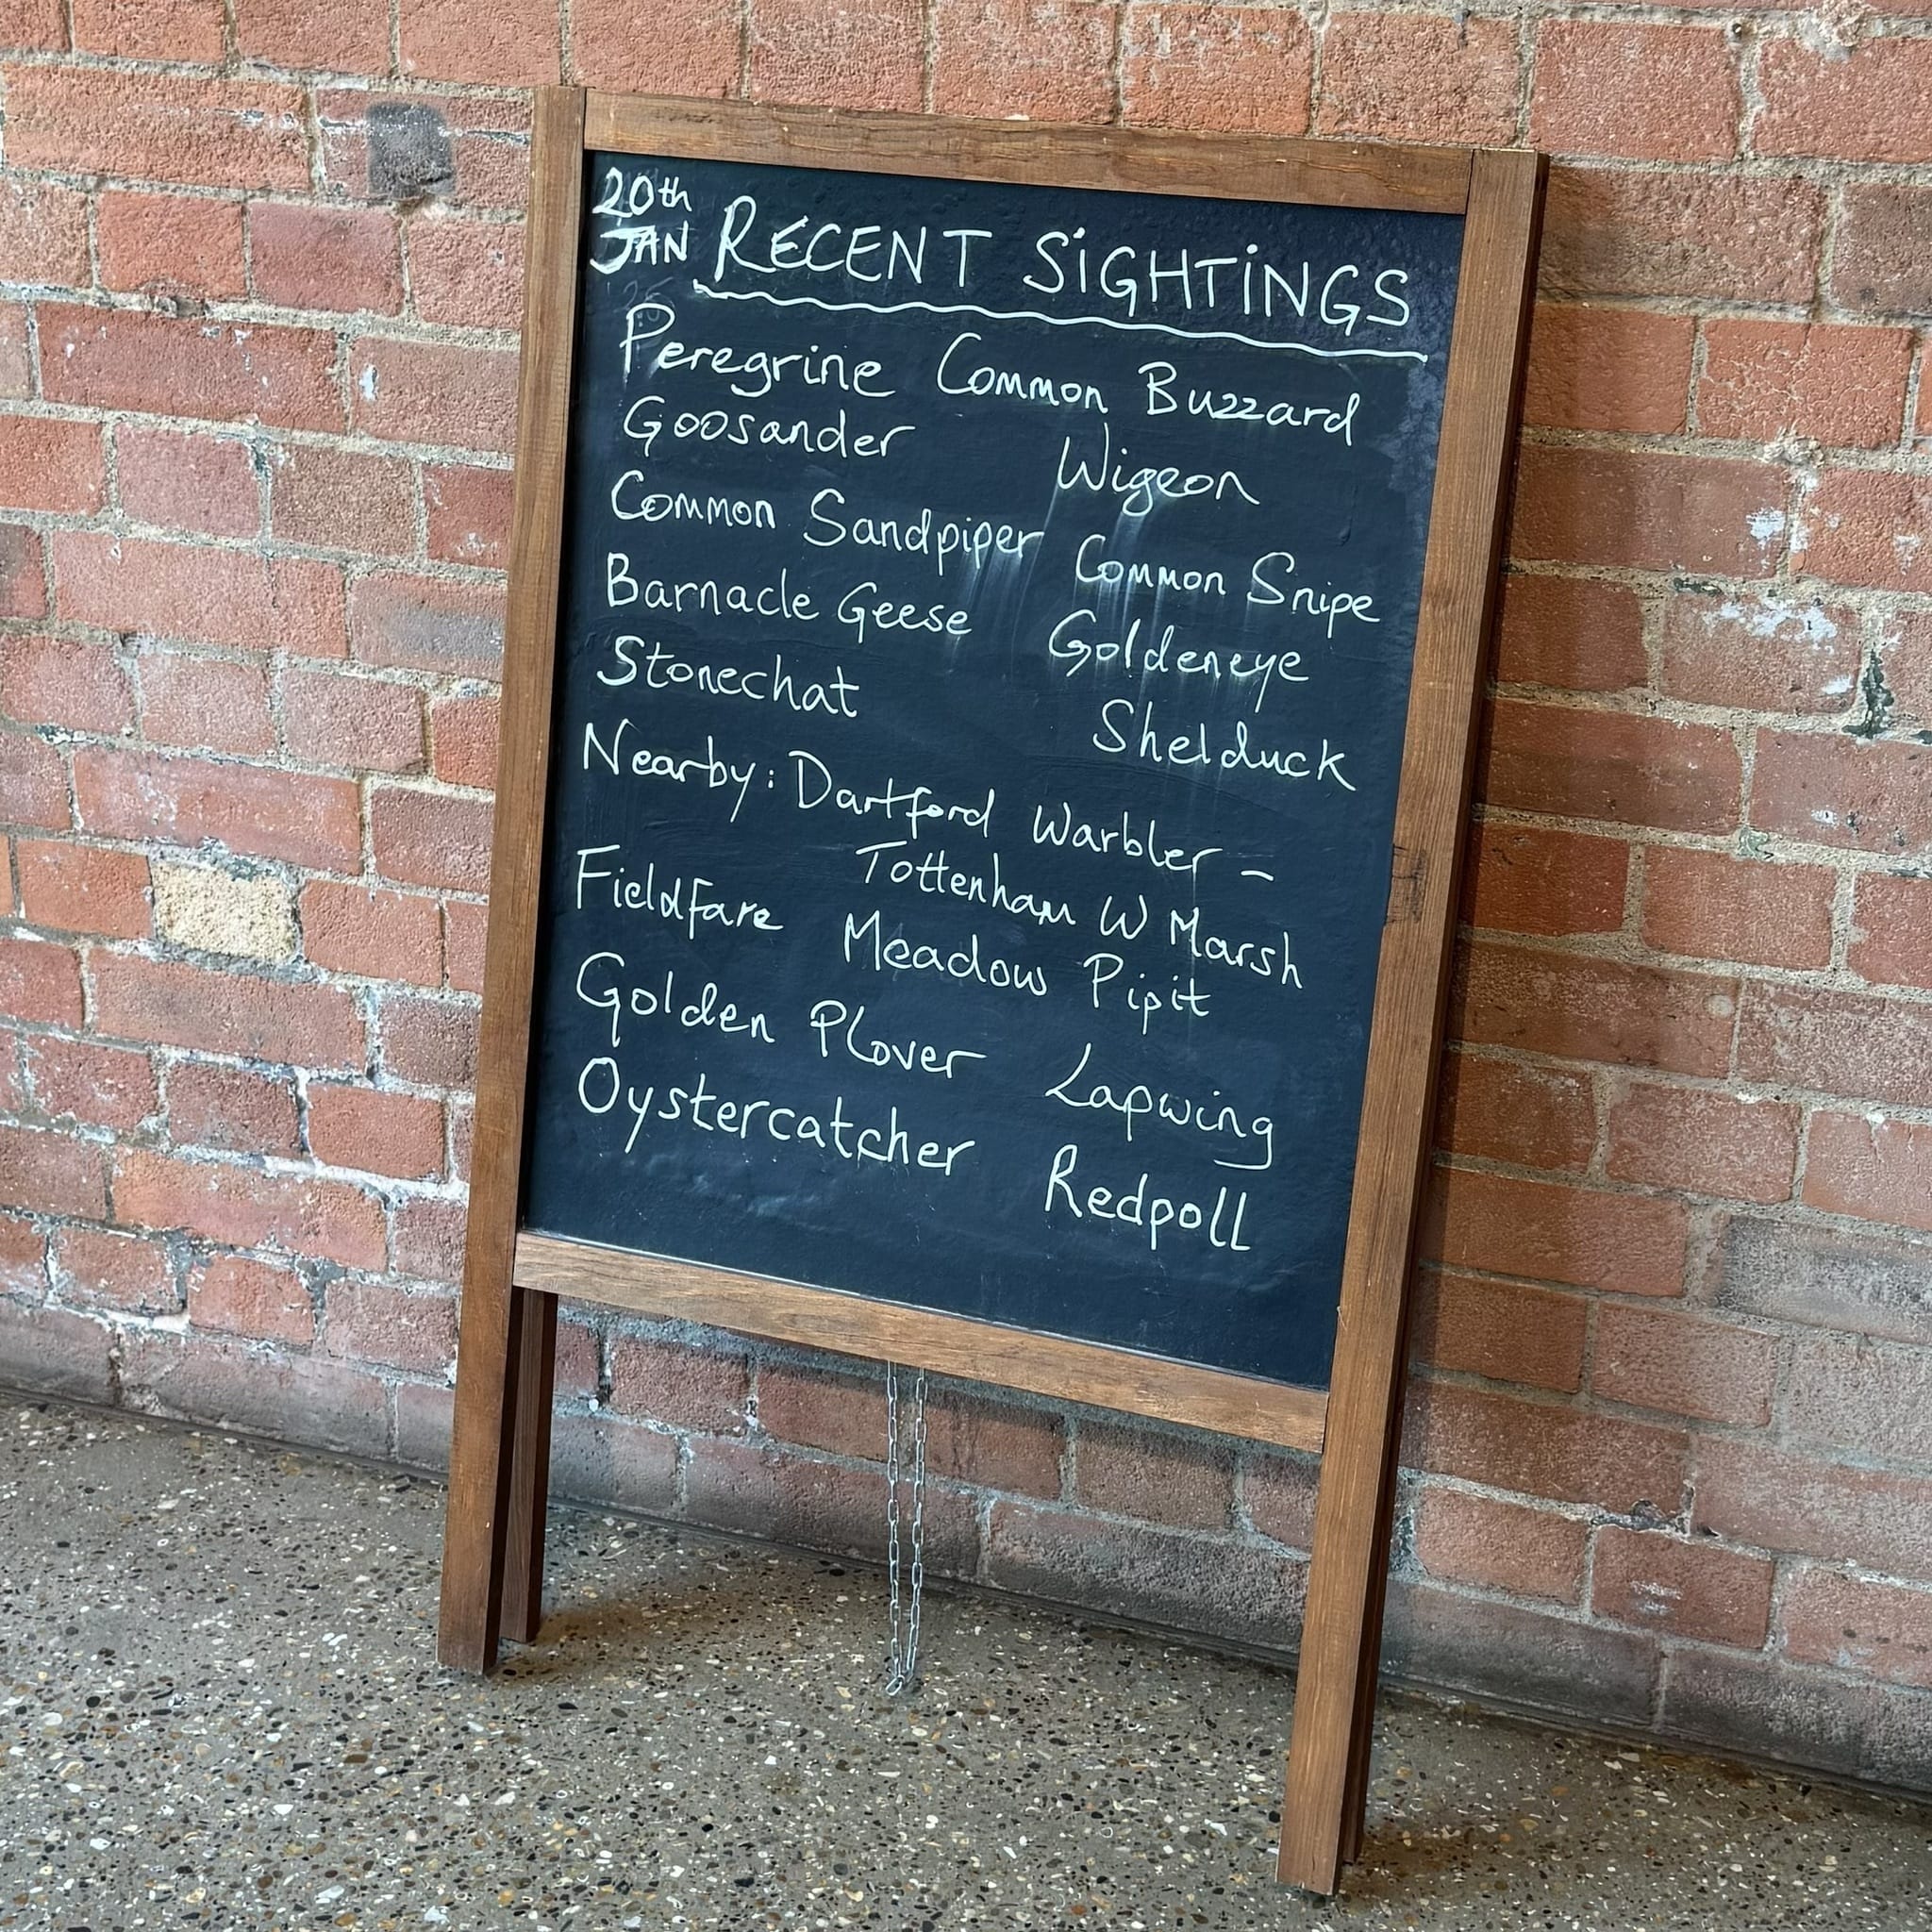 20th
JAN RECENT SiGHTiNGS
Peregrine Common Buzzard
Goosander Wigeon
Common Sandpiper Common Snipe
Barnacle Geese Goldeneye
Stonechat Shelduck
Nearby: Dartford Warbler -
Tottenham W Marsh
Fieldfare Meadow Pipit
Golden Plover Lapwing
Oystercatcher Redpoll